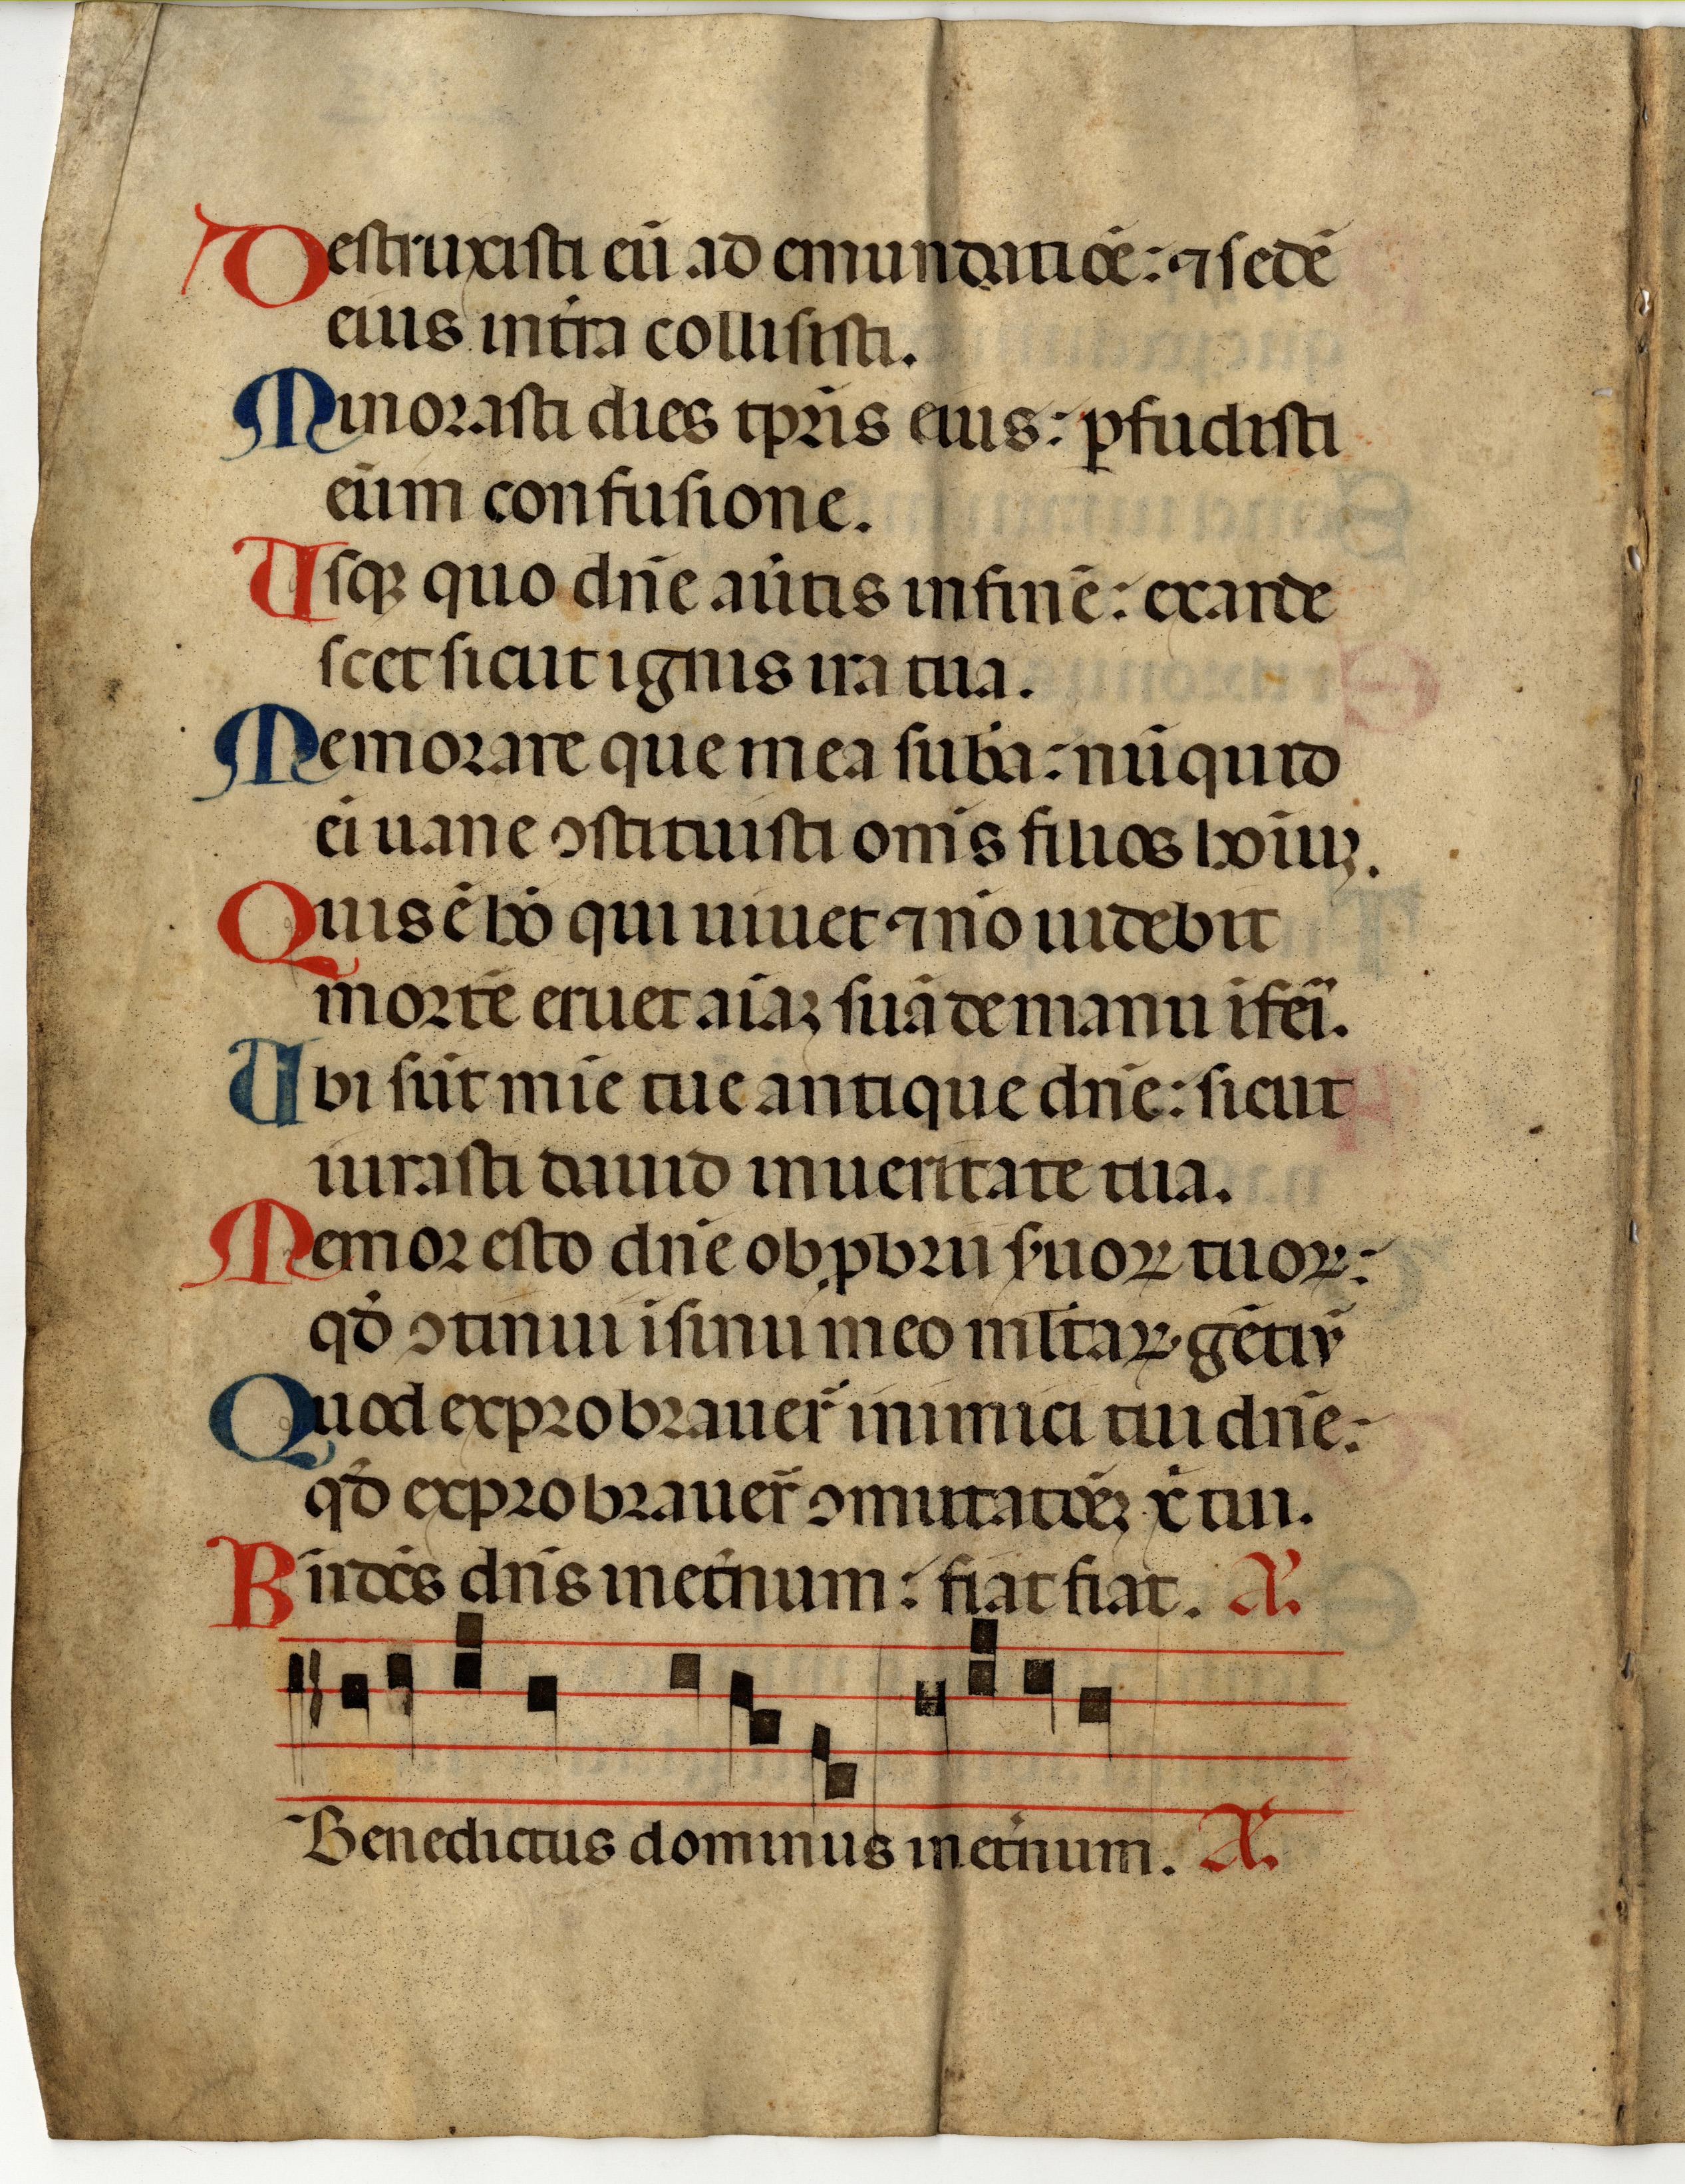 Destruxisti eū ad emundatiōe: ⁊ sedē
eius int̄ra collisisti.
Minorasti dies tpr̄is eius: ꝑfudisti
eūm confusione.
Usqꝫ quo dn̄e aūtis in finē: exarde
scet sicut ignis ira tua.
Memorare que mea sub̄a: nūquid
ei uane ꝯstituisti on̄is filios hoīuꝫ.
Quis ē hō qui uiuet ⁊ nō uidebit
mortē eruet aīaꝫ suā de manu īferī.
Ubi sūt mīe tue antique dn̄e: sicut
iurasti dauid in ueritate tua.
Memor esto dn̄e obꝓbrii s̓uoꝝ tuoꝝ:
qd̓ ꝯtinui ī sinu meo ml̄taꝝ gētiū
Quod exprobrauer̄ inimici tui dn̄e:
qd̓ exprobrauer̄ ꝯmutatiōeꝫ xī tui.
Bn̄dc̄s dn̄s in et̓num: fiat fiat. A.
Benedictus dominus in et̓num. A.